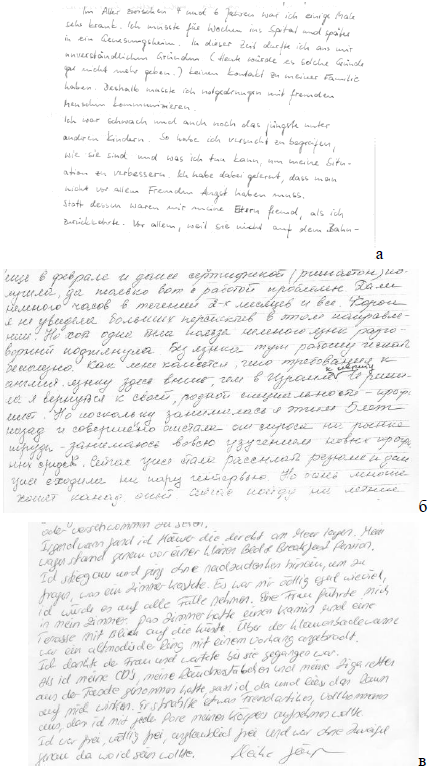 Im Alter zwischen 4 und 6 Jahren war ich einige Male
sehr krank. Ich musste für Wochen ins Spital und später
in ein Genesungsheim. In dieser Zeit durfte ich aus mir
unverständlichen Gründen (Heute würde es solche Gründe
gar nicht mehr geben.) keinen Kontakt zu meiner Familie
haben. Deshalb musste ich notgedrungen mit fremden
Menschen kommunizieren.
Ich war schwach und auch noch das jüngste unter
anderen Kindern. So habe ich versucht zu begreifen,
wie sie sind und was ich tun kann, um meine Situ-
ation zu verbessern. Ich habe dabei gelernt, dass man
nicht vor allem Fremden Angst haben muss.
Statt dessen waren mir meine Eltern fremd, als ich
zurückkehrte. Vor allem, weil sie nicht auf dem Bahn-
а
еще в феврале и даже сертификат по-
лучила, да только вот с работой проблемы. Дали
немного часов в течении 2-х месяцев и все. Короче
я не увидела больших перспектив в этом направле-
нии. Но хоть одна была польза немного язык разго-
ворный подтянула. Без языка тут работу искать
бесполезно. Как мне кажется, что требования к
англ. языку здесь выше, чем в Израиле к ивриту. Я реши-
ла я вернуться к своей, родной специальности -
Но поскольку занималась я этим 5 лет
назад и совершенно отстала от спроса на рынке
труда - занимаюсь вовсю изучением новых
Сейчас уже стала рассылать резюме и даже
уже сходила на пару интервью. Но очень многие
хотят
б
verschwommen zu sehen.
Irgendwann fand ich Häuser die direkt am Meer lagen. Mein
Wagen stand genau vor einer kleinen Bed & Breakfast Pension.
Ich stieg aus und ging ohne nachzudenken hinein, um zu
fragen, was ein Zimmer kostete. Es war mir völlig egal wieviel,
ich würde es auf alle Fälle nehmen. Eine Frau führte mich
in mein Zimmer. Das Zimmer hatte einen Kamin und eine
Terasse mit Blick auf die Küste. Über der Badewanne
war ein altmodischer Ring mit einem Vorhang angebracht.
Ich dankte der Frau und wartete bis sie gegangen war.
Als ich meine CDs, meine Räucherstäbchen und meine Zigaretten
aus der genommen hatte, sass ich da und liess den Raum
auf mich wirken. Er strahlte etwas Fremdartiges, Vollkommenes
aus, das ich mit jeder Pore meines Körpers aufnehmen wollte.
Ich war frei, völlig frei, unglaublich frei und war ohne Zweifel
genau da wo ich sein wollte.
в